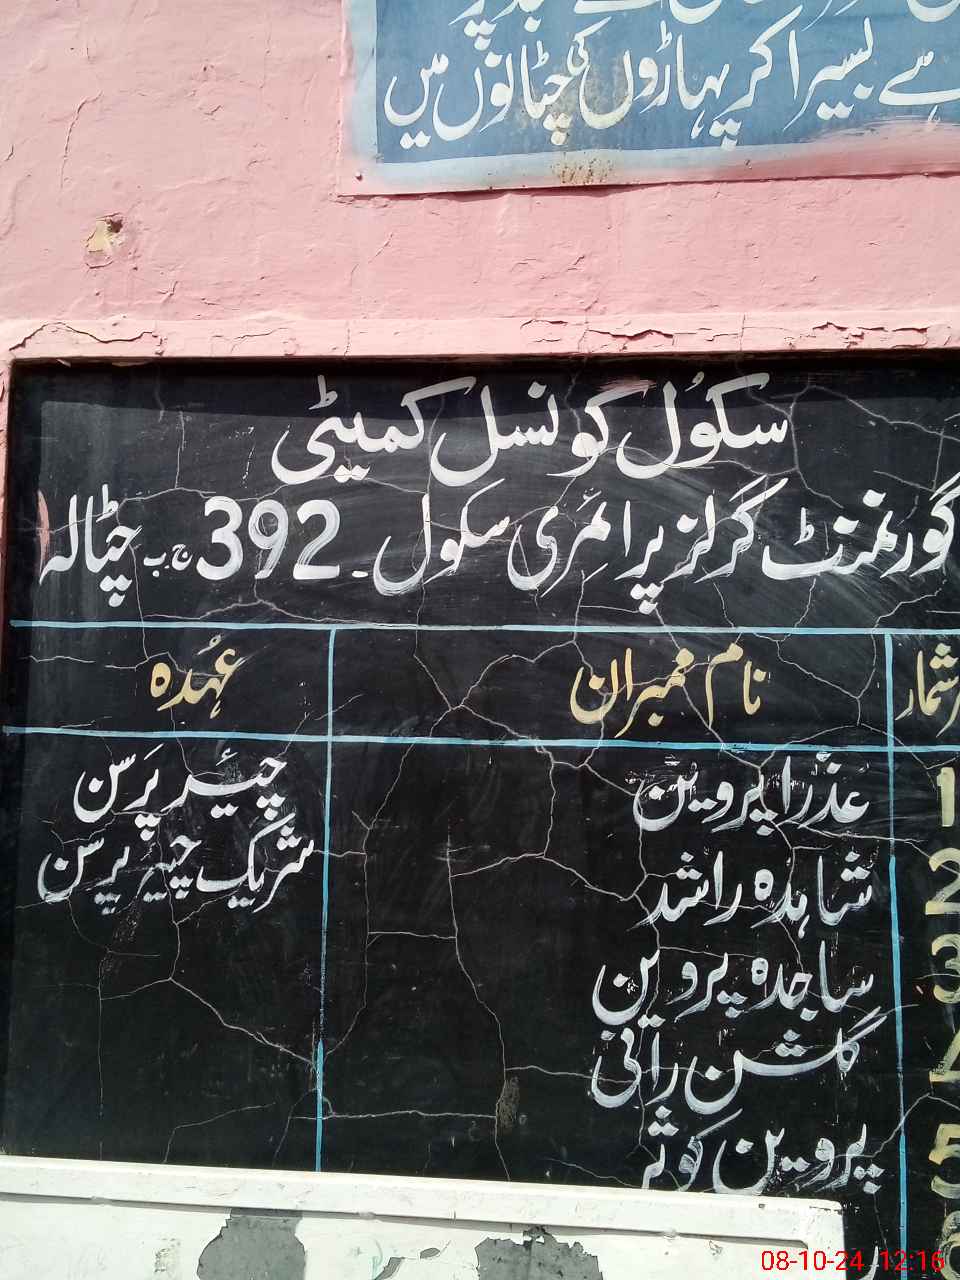 ہے بسیرا کر پہاڑوں کی چٹانوں میں
سکول کونسل کمیٹی
گورنمنٹ گرلز پرائمری سکول ۔ 392 ج ب چٹالہ
نام ممبران عہدہ
1 عذرا پروین چیئر پرسن
2 شاہدہ راشد شریک چیئر پرسن
3 ساجدہ پروین
4 گلشن رانی
5 پروین کوثر
08-10-24 12:16